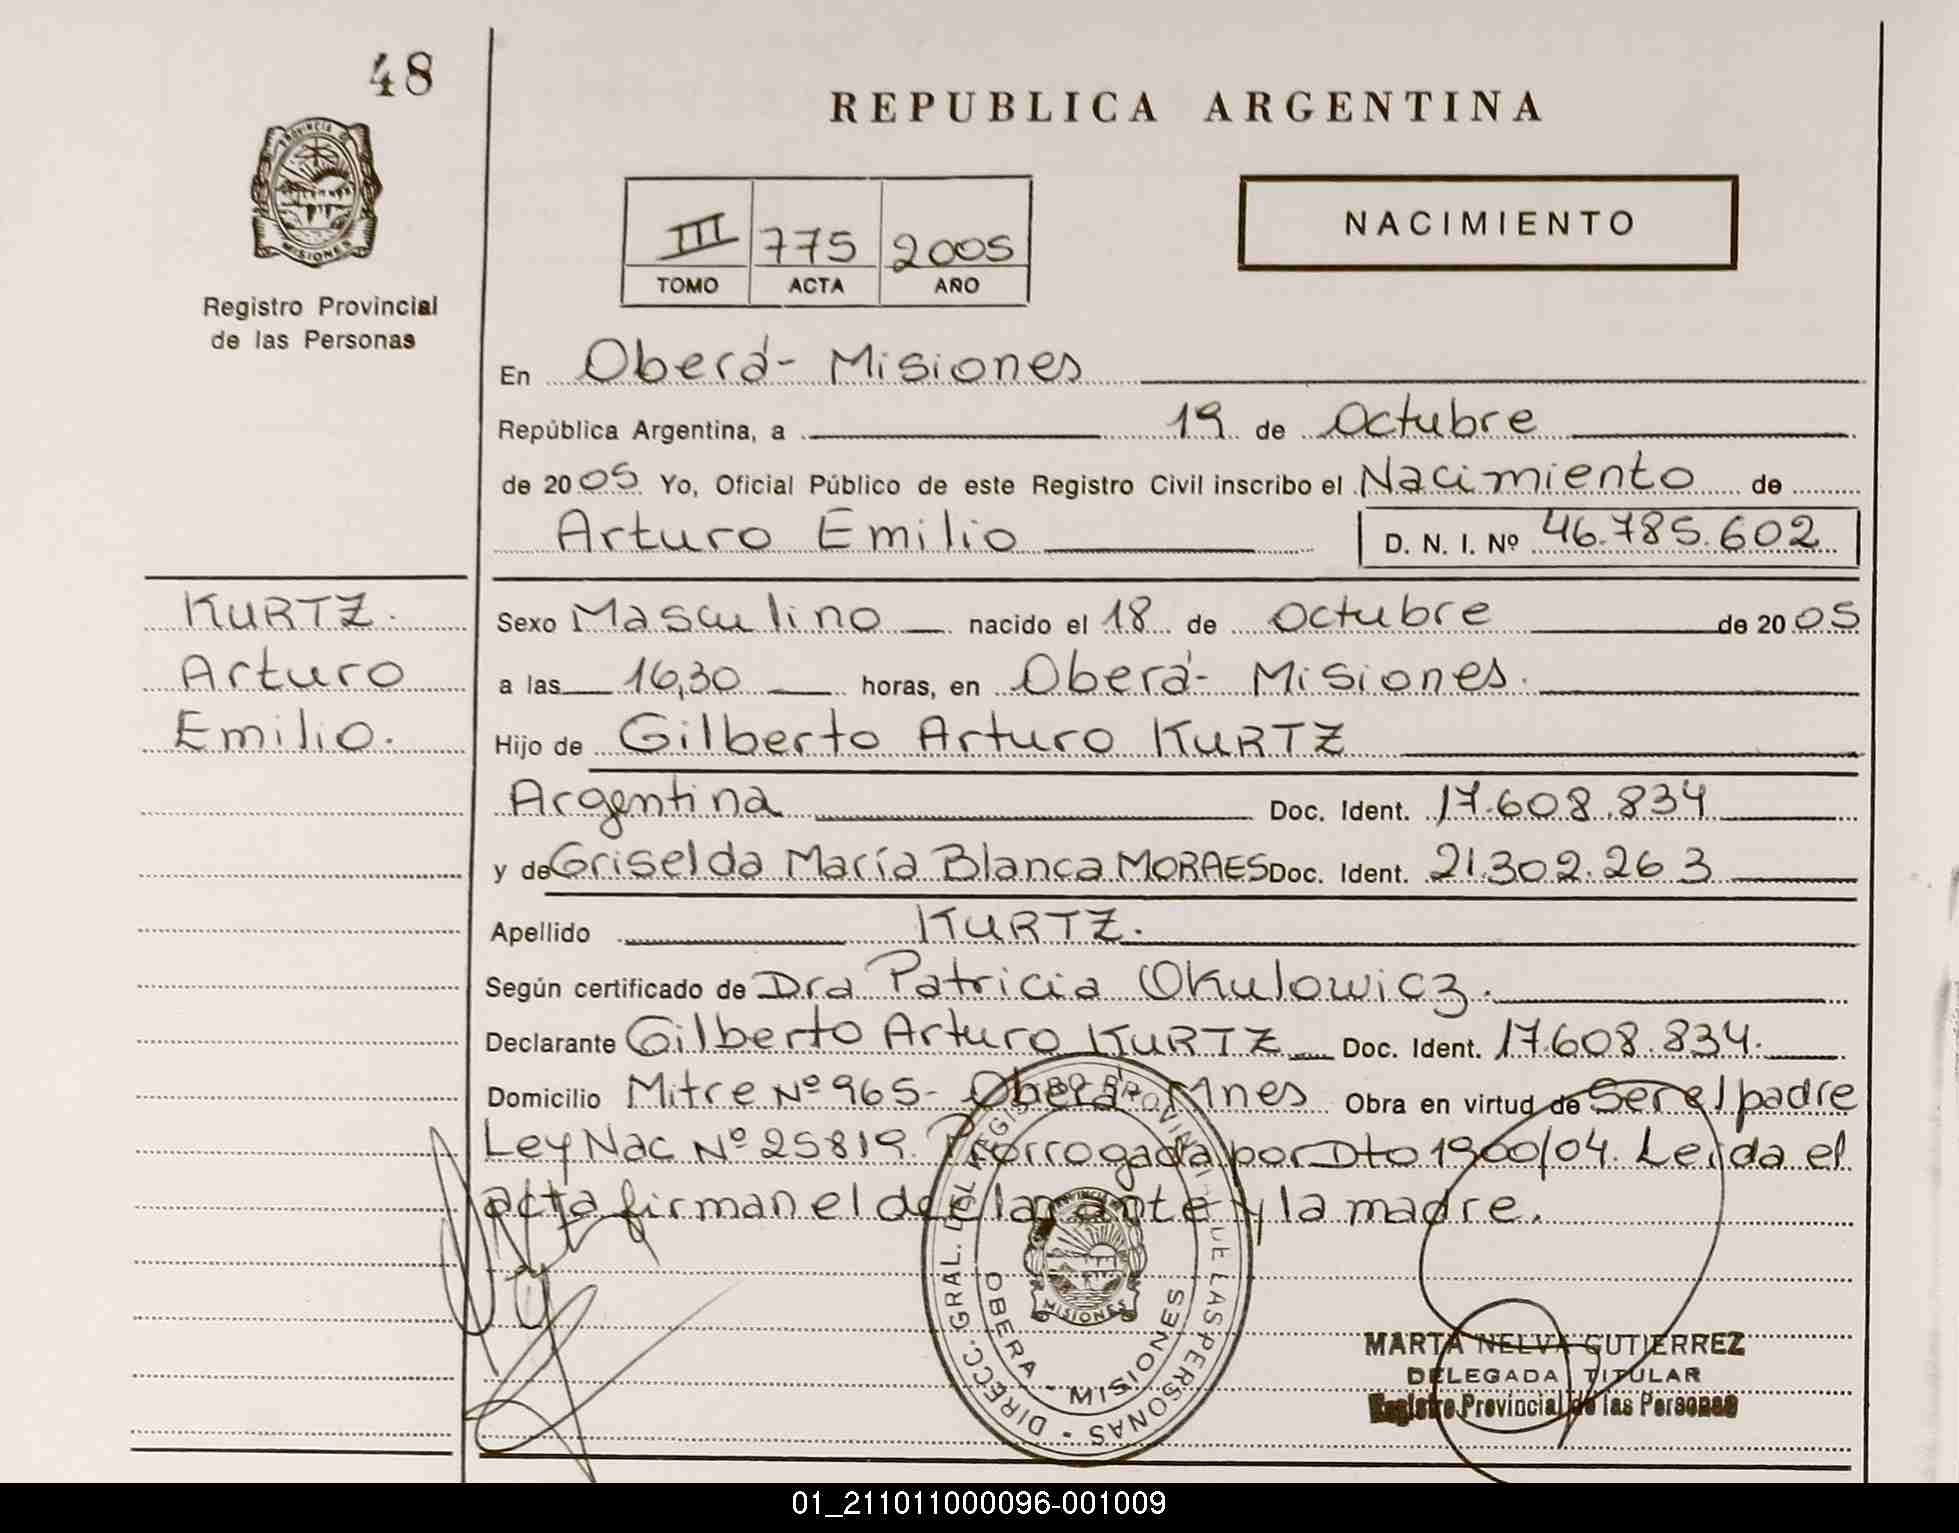 48
REPUBLICA ARGENTINA
PROVINCIA DE
MISIONES
Registro Provincial
de las Personas
III 775 2005
TOMO ACTA AÑO
NACIMIENTO
En Oberá- Misiones
República Argentina, a 19 de Octubre
de 2005 Yo, Oficial Público de este Registro Civil inscribo el Nacimiento de
Arturo Emilio D. N. I. Nº 46.785.602
KURTZ.
Arturo
Emilio.
Sexo Masculino nacido el 18 de Octubre de 2005
a las 16,30 horas, en Oberá- Misiones.
Hijo de Gilberto Arturo KURTZ
Argentina Doc. Ident. 17.608.834
y de Griselda María Blanca MORAES Doc. Ident. 21.302.263
Apellido KURTZ.
Según certificado de Dra Patricia Okulowicz.
Declarante Gilberto Arturo KURTZ Doc. Ident. 17.608.834.
Domicilio Mitre Nº 965- Oberá- Mnes Obra en virtud de Ser el padre
Ley Nac Nº 25819. Prorrogada por Dto 1900/04. Leída el
acta firman el declarante y la madre.
DIRECC. GRAL. DEL REGISTRO PROVINCIAL DE LAS PERSONAS -
OBERA - MISIONES
MISIONES
MARTA NELVA GUTIERREZ
DELEGADA TITULAR
Registro Provincial de las Personas
01_211011000096-001009